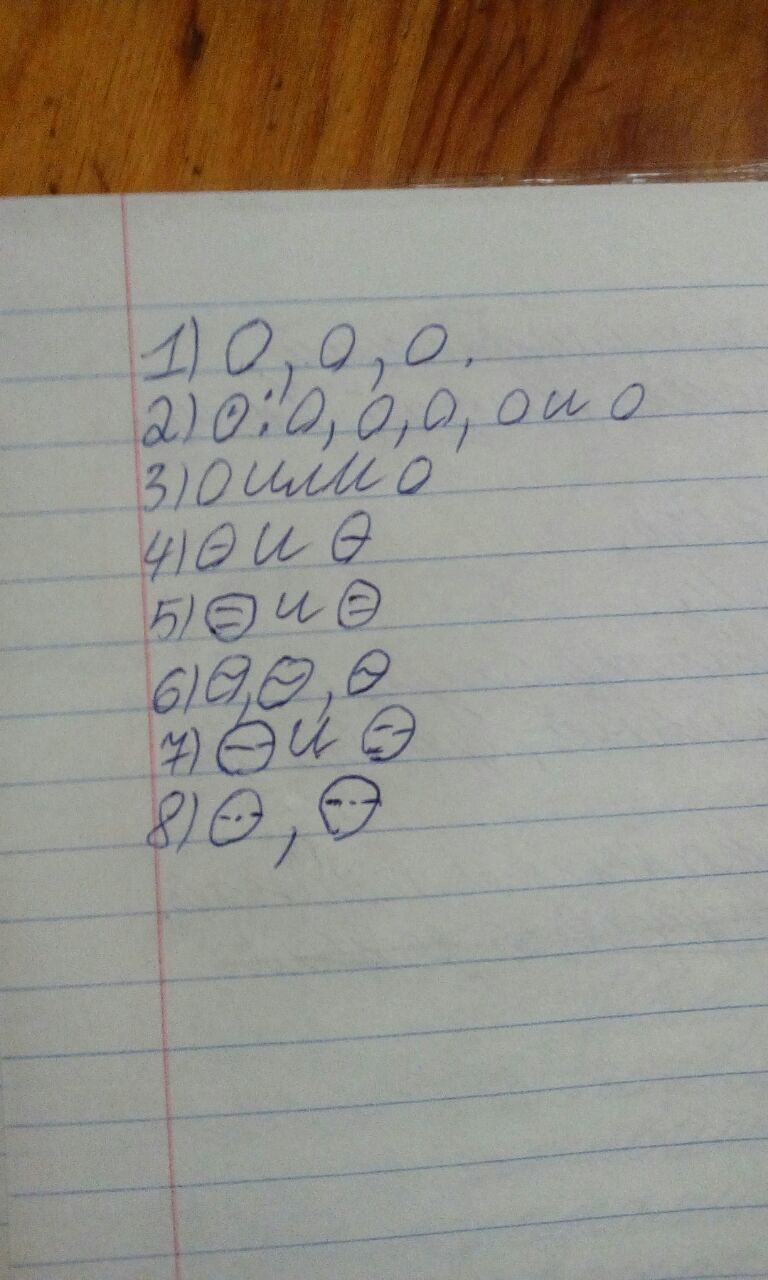 1) О, О, О.
2) ⊙: О, О, О, О и О
3) О или О
4) ⊖ и ⊖
5) ⊜ и ⊜
6) ⊖, ⊖, ⊖
7) ⊖ и ⊖
8) ⊖, ⊖